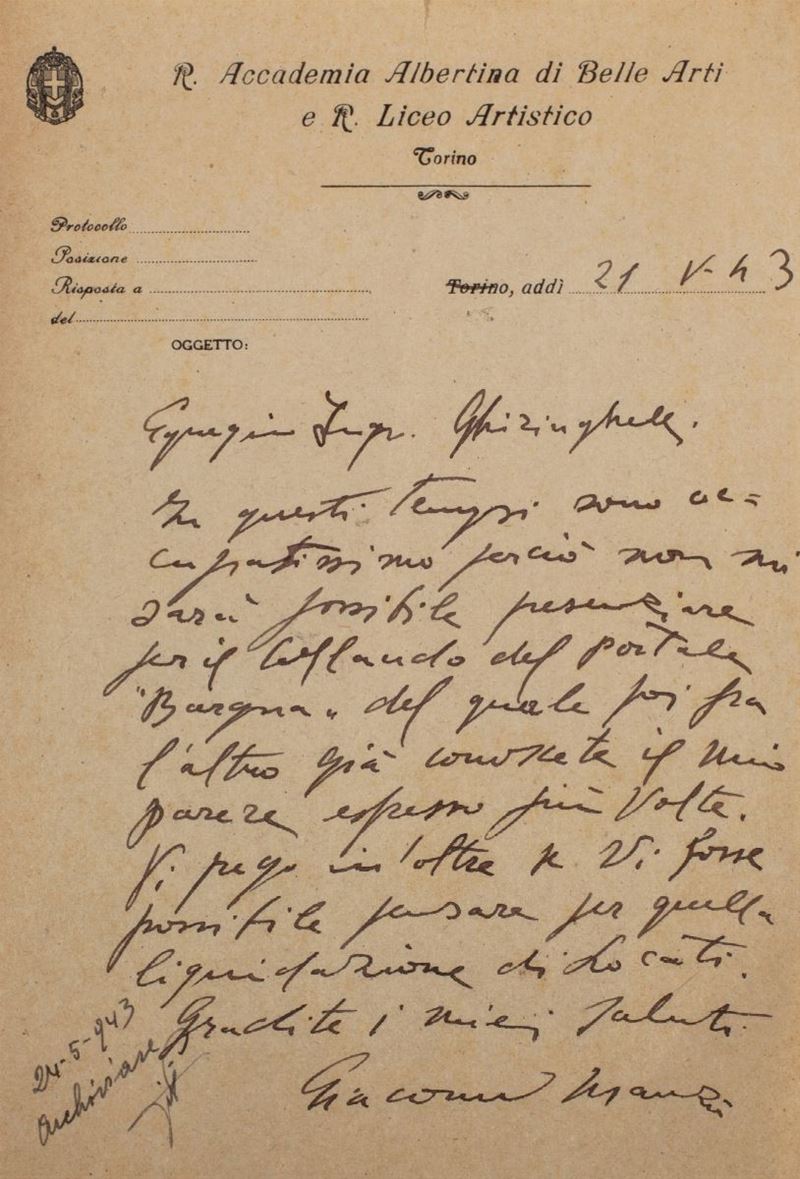 R. Accademia Albertina di Belle Arti
e R. Liceo Artistico
Torino
Protocollo
Posizione
Risposta a
del
Torino, addì 21 V- 43
OGGETTO:
Egregio Ingr. Ghiringhelli.
In questi tempi sono oc=
cupatissimo perciò non mi
sarà possibile presenziare
per il Collaudo del portale
"Bargna" del quale poi fra
l'altro già conoscete il mio
parere espresso più volte.
Vi prego in'oltre se Vi fosse
possibile pensare per quella
liquidazione di Locati.
Gradite i miei saluti.
Giacomo Manzù
24-5-943
Archiviare